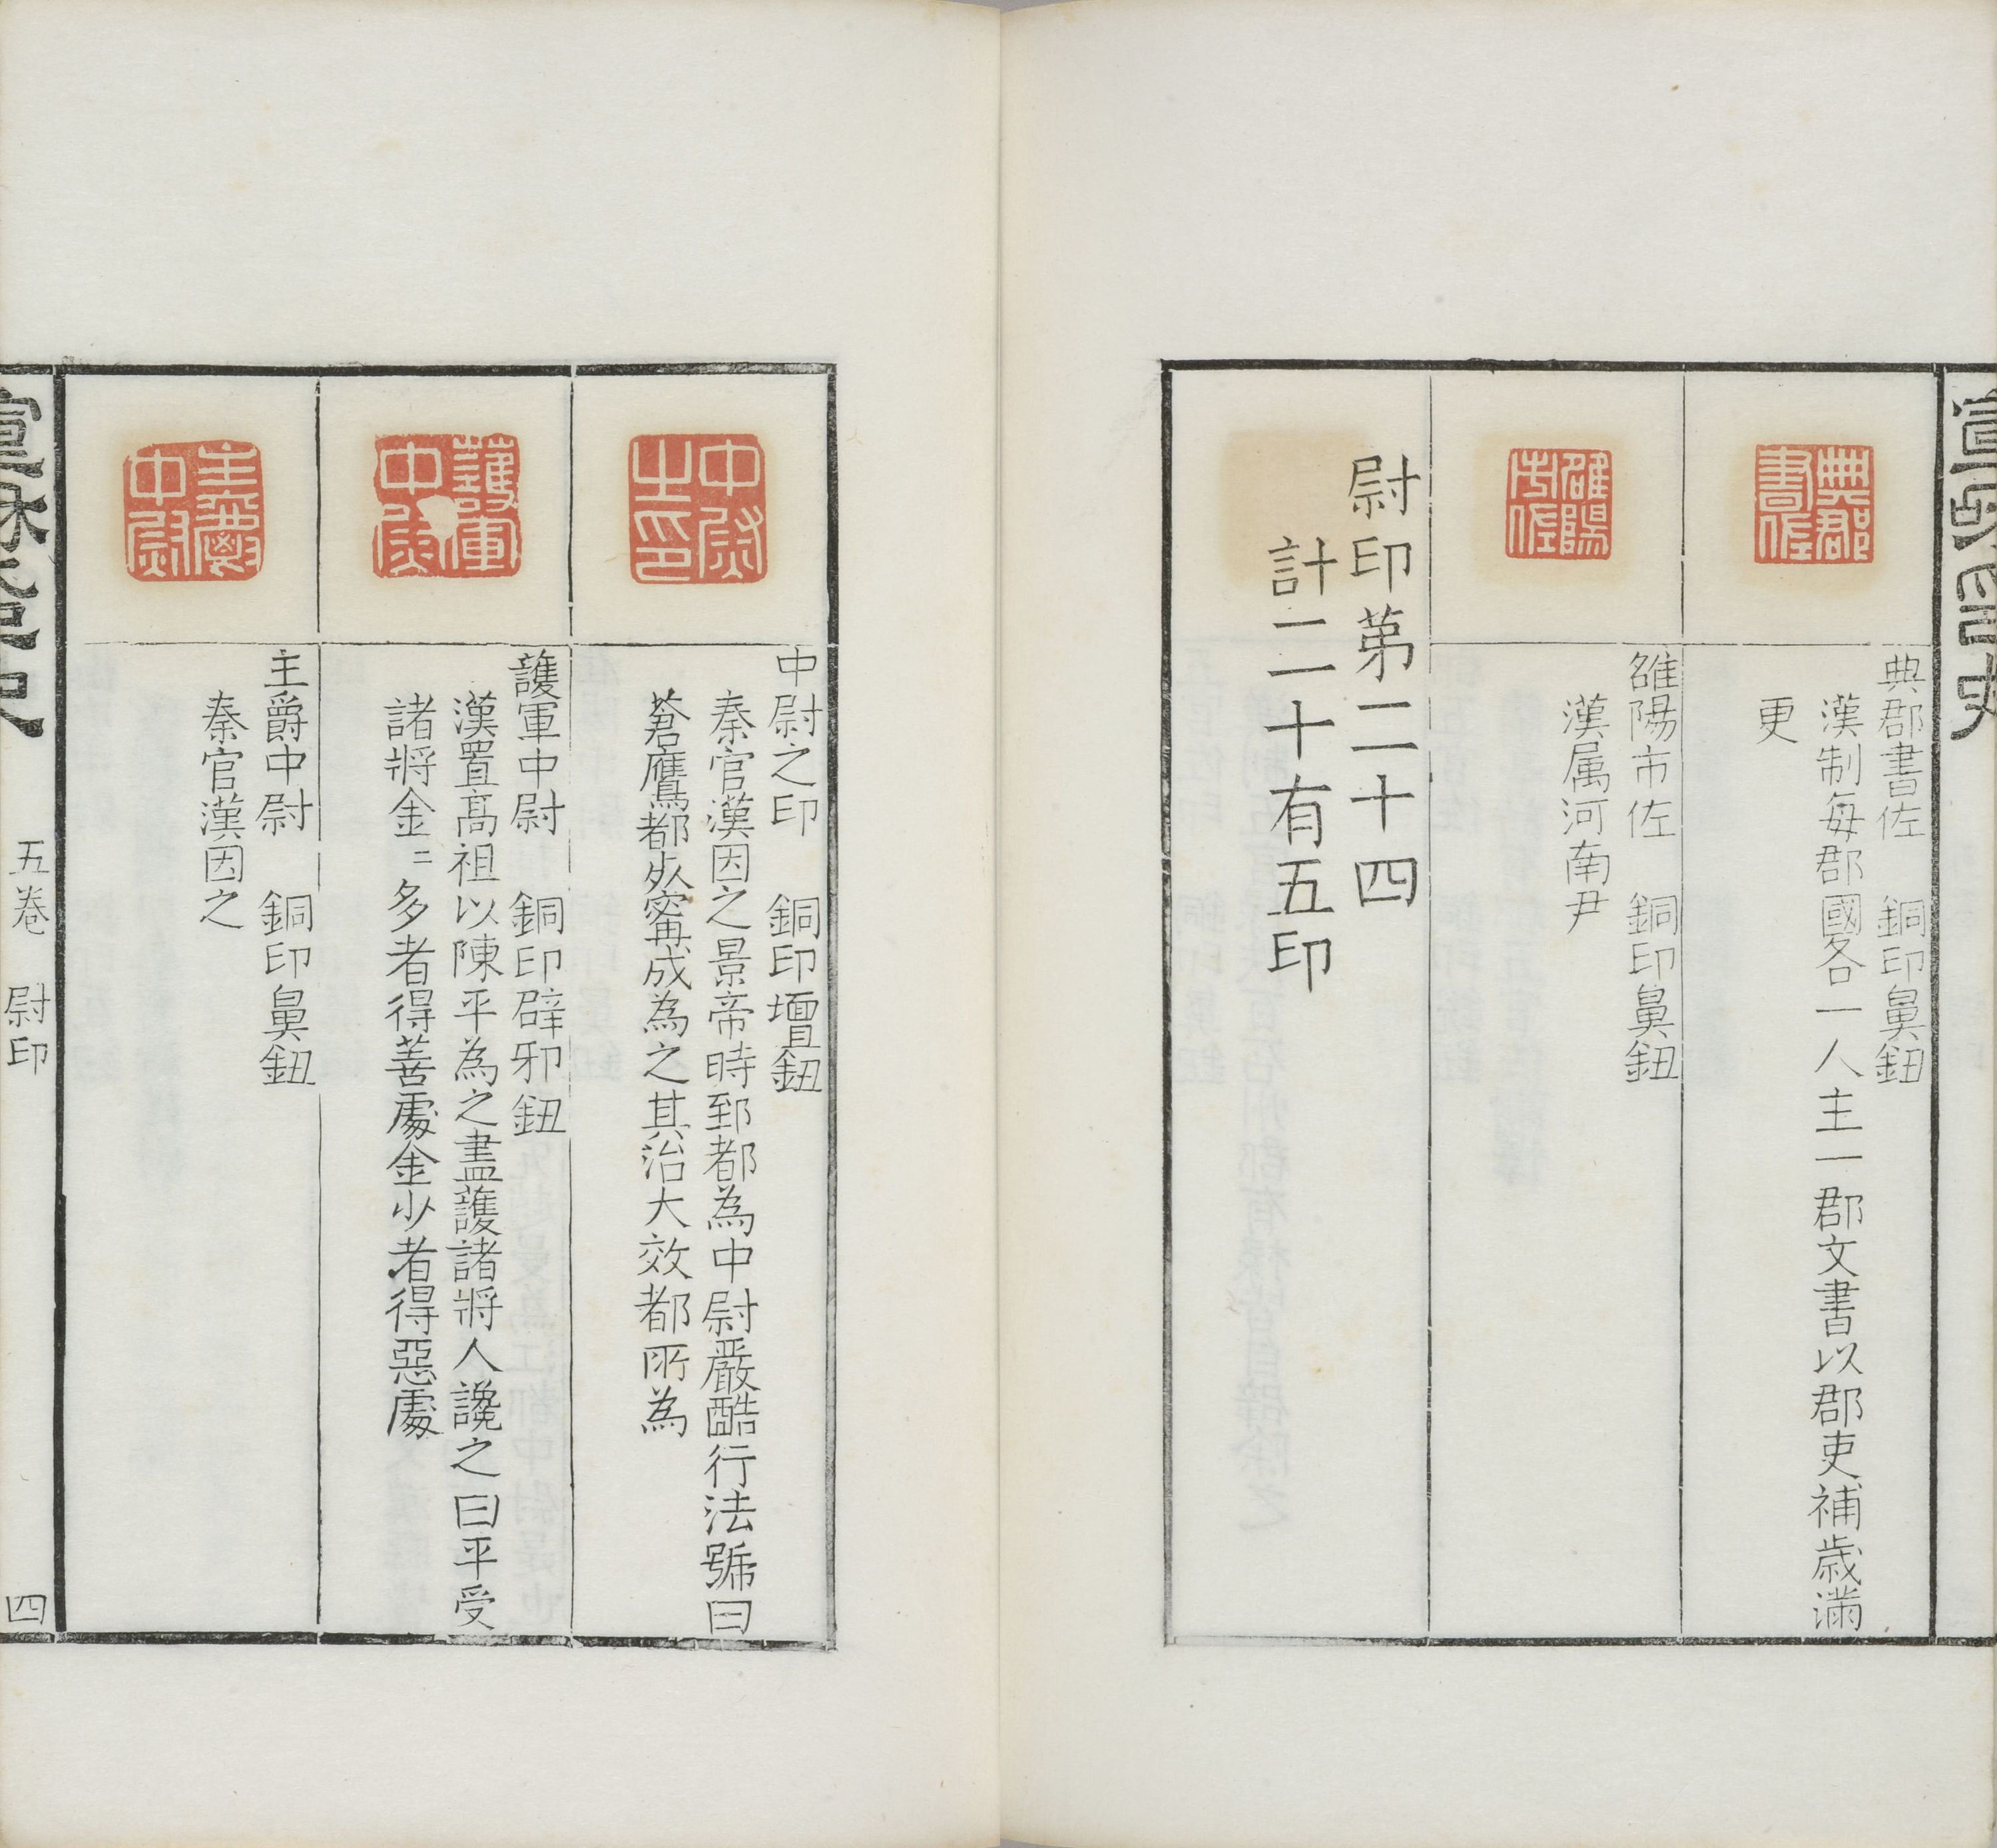 宣和印史
典郡書佐
典郡書佐　銅印鼻鈕
漢制每郡國各一人主一郡文書以郡吏補歲滿
更
雒陽市佐
雒陽市佐　銅印鼻鈕
漢属河南尹
尉印苐二十四
計二十有五印
中尉之印
中尉之印　銅印壇鈕
秦官漢因之景帝時郅都為中尉嚴酷行法號曰
蒼鷹都死甯成為之其治大效都所為
護軍中尉
護軍中尉　銅印辟邪鈕
漢置髙祖以陳平為之盡護諸將人讒之曰平受
諸將金〻多者得善處金少者得惡處
主爵中尉
主爵中尉　銅印鼻鈕
秦官漢因之
宣和印史　五卷　尉印　四